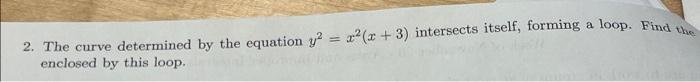 2. The curve determined by the equation y² = x²(x + 3) intersects itself, forming a loop. Find the
enclosed by this loop.